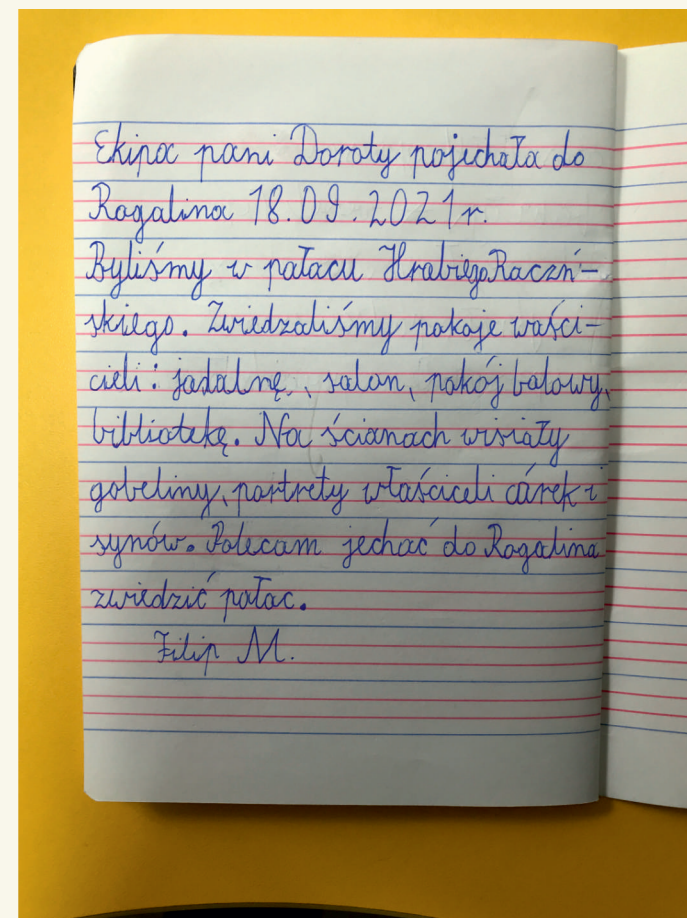 Ekipa pani Doroty pojechała do
Rogalina 18.09.2021r.
Byliśmy w pałacu Hrabiego Raczń-
skiego. Zwiedzaliśmy pokoje waści-
cieli: jadalnę, salon, pokój balowy,
bibliotekę. Na ścianach wisiały
gobeliny, portrety właściceli córek i
synów. Polecam jechać do Rogalina
zwiedzić pałac.
Filip M.